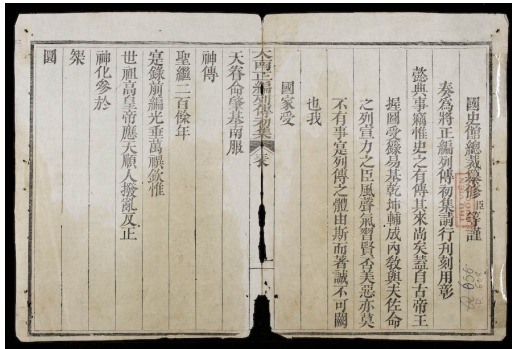 國史館總裁纂修臣等謹
奏爲將正編列傳初集請行刊刻用彰
懿典事竊惟史之有傳其來尚矣蓋自古帝王
握圖受籙易基乾坤輔成內敎與夫佐命
之列宣力之臣風聲氣習賢否美惡亦莫
不有事寔列傳之體由斯而著誠不可闕
也我
國家受
大南正編列傳初集 表
天眷命肇基南服
神傳
聖繼二百餘年
寔錄前編光垂萬禩欽惟
世祖高皇帝應天順人撥亂反正
神化參於